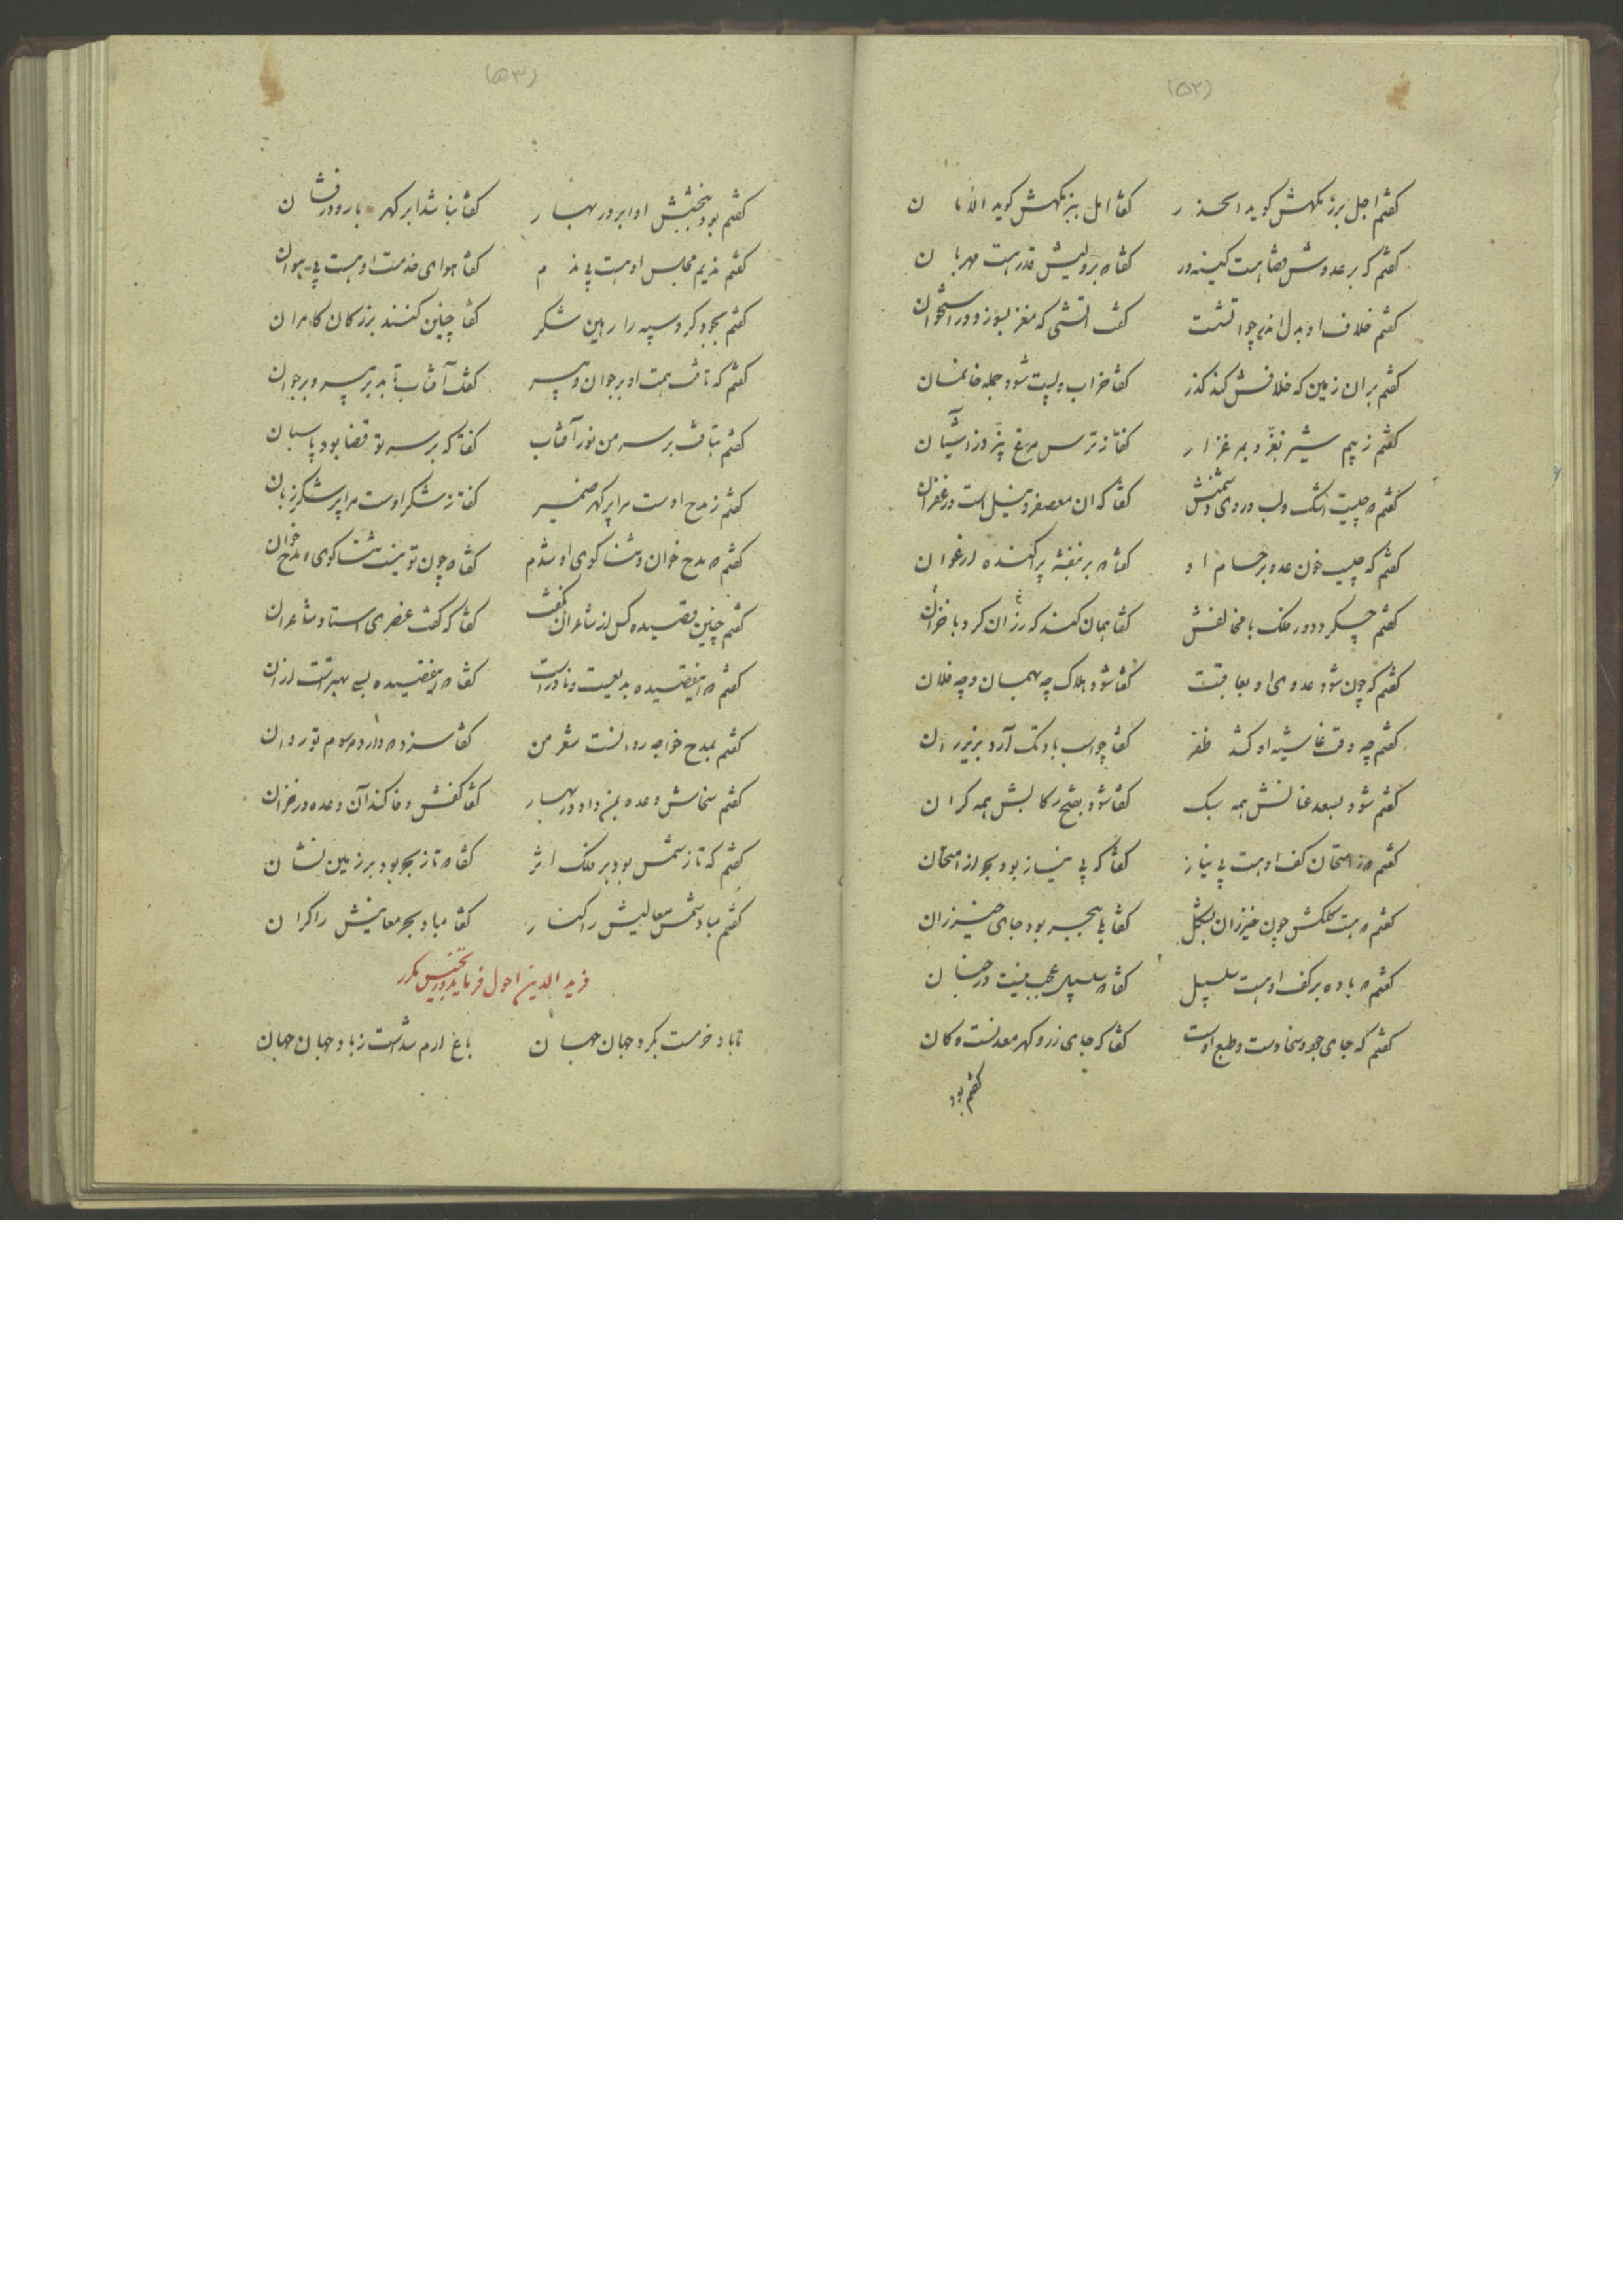 (۵۲)
کفتم اجل برزمکهش کوید الحذر کفتا امل ببزمکهش کوید الامان
کفتم که بر عدوش قضا هست کینه ور کفتا که بر ولیش قدر هست مهربان
کفتم خلاف او بدل اندر چو اتشست کفت اتشی که مغز بسوزد در استخوان
کفتم بران زمین که خلافش کند کذر کفتا خراب و پست شود جمله خانمان
کفتم ز بیم شیر نغرد بمرغزار کفتا ز ترس مرغ نپرد ز آشیان
کفتم که چیست اشک و لب و روی دشمنش کفتا که ان معصفر و نیل است و زعفران
کفتم که چیست خون عدو بر حسام او کفتا که بر بنفشه پراکنده ارغوان
کفتم چه کرد دور فلک با مخالفش کفتا همان کند که رزان کرد با خزان
کفتم که چون شود عدوی او بعاقبت کفتا شود هلاک چه بهمان و چه فلان
کفتم چه وقت غاشیه او کشد ظفر کفتا چو اسب بادتک آرد بزیر ران
کفتم شود بسعد عنانش همه سبک کفتا شود بفتح رکابش همه کران
کفتم که ز امتحان کف او هست بی نیاز کفتا که بی نیاز بود بحر از امتحان
کفتم که هست کلکش چون خیزران بشکل کفتا بلی بحر بود جای خیزران
کفتم که باده بر کف او هست سلسبیل کفتا که سلسبیل عجب نیست در جنان
کفتم که جای جود و سخا دست و طبع اوست کفتا که جای زر و کهر معدنست و کان
کفتم بود
(۵۳)
کفتم بود ببخشش او ابر در بهار کفتا نباشد ابر کهر بار و درفشان
کفتم ندیم مجلس او هست بی ندم کفتا هوای خدمت او هست بی هوان
کفتم بجود کرد سپه را رهین شکر کفتا چنین کنند بزرکان کامران
کفتم که تافت همت او بر جوان و پیر کفت آفتاب تابد بر پیر و بر جوان
کفتم بتافت بر سر من نور آفتاب کفتا که بر سر تو قضا بود پاسبان
کفتم ز مدح اوست مرا پر کهر ضمیر کفتا ز شکر اوست مرا پر شکر زبان
کفتم که مدح خوان و ثنا کوی او شدم کفتا که چون تو نیست ثنا کوی و مدح خوان
کفتم چنین قصیده کس از شاعران نکفت کفتا که کفت عنصری استاد شاعران
کفتم که اینقصیده بدیعست و نادراست کفتا که اینقصیده بسی بهتراست ازان
کفتم بمدح خواجه روانست شعر من کفتا سزد که دارد مرسوم تو روان
کفتم سخاش وعده بمن داد در بهار کفتا کفش وفا کند آن وعده در خزان
کفتم که تا ز شمس بود بر فلک اثر کفتا که تا ز بحر بود بر زمین نشان
کفتم مباد شمس معالیش را کنار کفتا مباد بحر معانیش را کران
فرید الدین احول فرماید در تجنیس مکرر
تا باد خوست بکرد جهان جهان باغ ارم شداست ز باد جهان جهان